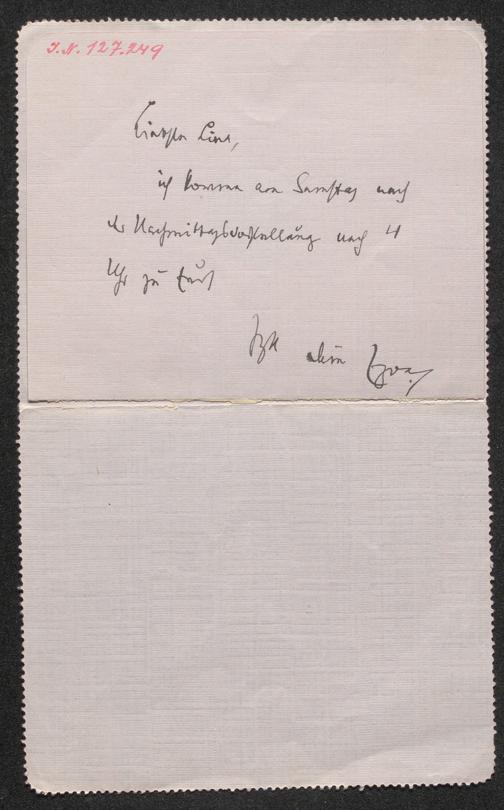 I.N. 127.249
Liebste Lina,
ich komme am Samstag nach
der Nachmittagsvorstellung nach 4
Uhr zu Euch
dein